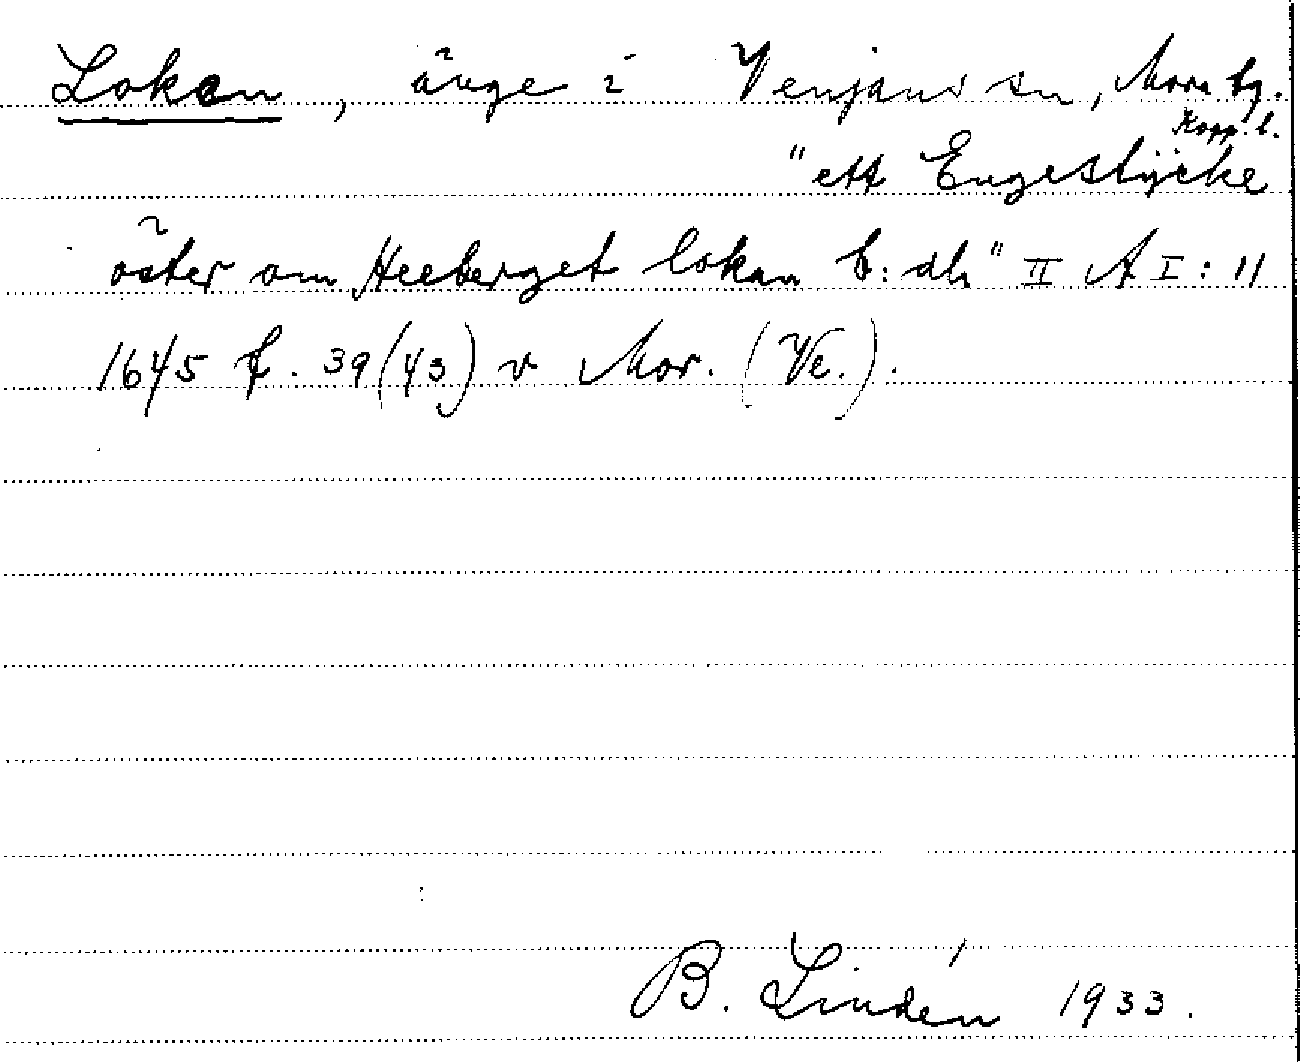 Lokan, änge i Venjans sn, Mora tg.
Kopp. l.
"ett Engestÿcke
öster om Heeberget lokan b: dh" II A I: 11
1645 f. 39 (43) v Mor. (Ve.).
B. Lindén 1933.